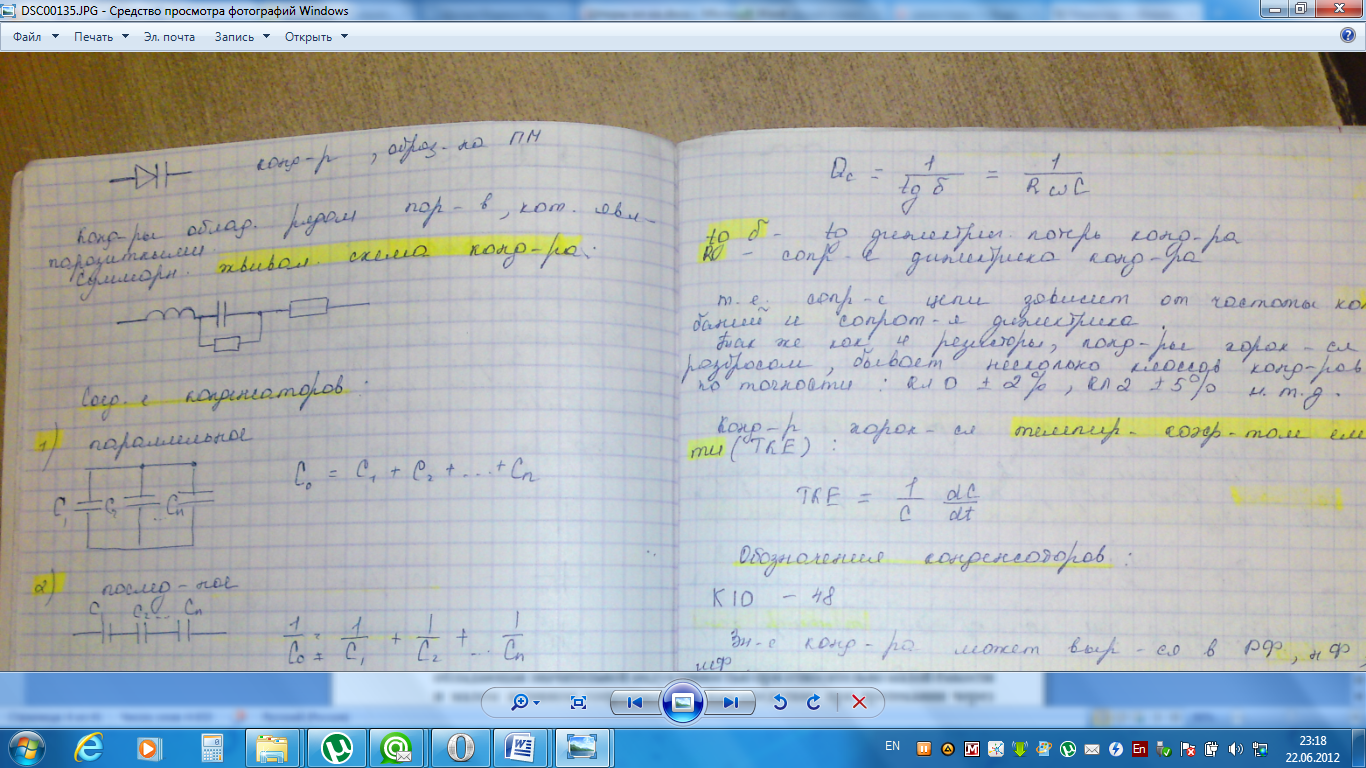 DSC00135.JPG - Средство просмотра фотографий Windows
Файл Печать Эл. почта Запись Открыть
конд-р, образ. на ПМ
Конд-ры облад. рядом пар-в, кот. явл-
паразитными
Суммарн. эквивал. схема конд-ра:
Соед-е конденсаторов:
1) параллельное
C₁ C₂ ... Cn
C₀ = C₁ + C₂ + ... + Cn
2) послед-ное
C₁ C₂ ... Cn
1/C₀ = 1/C₁ + 1/C₂ + ... 1/Cn
Qc = 1/tg δ = 1/RωC
tg δ - tg диэлектрич. потерь конд-ра
RД - сопр-е диэлектрика конд-ра
т.е. сопр-е цепи зависит от частоты кол
баний и сопрот-я диэлектрика.
Так же как и резисторы, конд-ры харак-ся
разбросом, бывает несколько классов конд-ров
по точности: кл 0 ±2%, кл 2 ±5% и.т.д.
Конд-р харак-ся темпер-
ти (ТКЕ):
ТКЕ = 1/C dC/dt
Обозначения конденсаторов:
К10 - 48
Зн-е конд-ра может выр-ся в РФ, нФ,
EN
W
M
En
23:18
22.06.2012